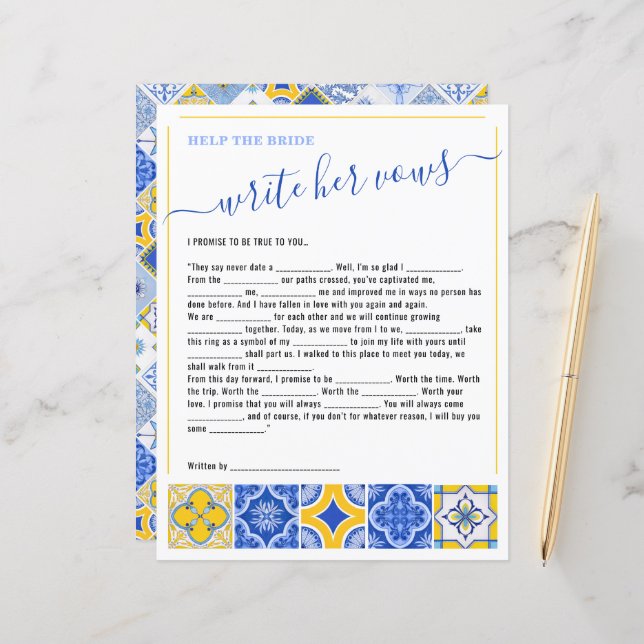 HELP THE BRIDE
write her vows
I PROMISE TO BE TRUE TO YOU...
"They say never date a ______________. Well, I'm so glad I ______________.
From the ______________ our paths crossed, you've captivated me,
______________ me, ______________ me and improved me in ways no person has
done before. And I have fallen in love with you again and again.
We are ______________ for each other and we will continue growing
______________ together. Today, as we move from I to we, ______________, take
this ring as a symbol of my ______________ to join my life with yours until
______________ shall part us. I walked to this place to meet you today, we
shall walk from it ______________.
From this day forward, I promise to be ______________. Worth the time. Worth
the trip. Worth the ______________. Worth the ______________. Worth your
love. I promise that you will always ______________. You will always come
______________, and of course, if you don't for whatever reason, I will buy you
some ______________."
Written by ____________________________